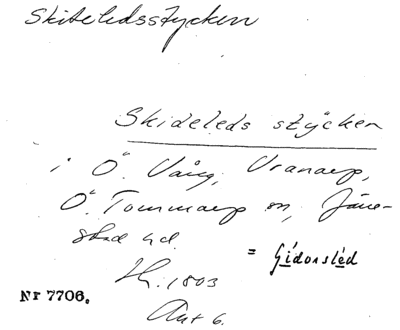 Skiteledsstycken
Skideleds stÿcken
i Ö. Vång, Vranarp,
Ö. Tommarp sn, Järre-
stad hd.
= Gídonsléd
1803
Akt 6.
Nr 7706.